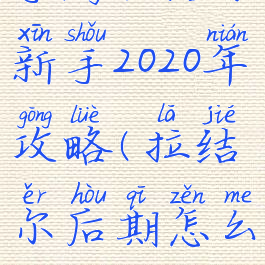 xīn shǒu nián
新手2020年
gōng lüè lā jié
攻略(拉结
ěr hòu qī zěn me
尔后期怎么